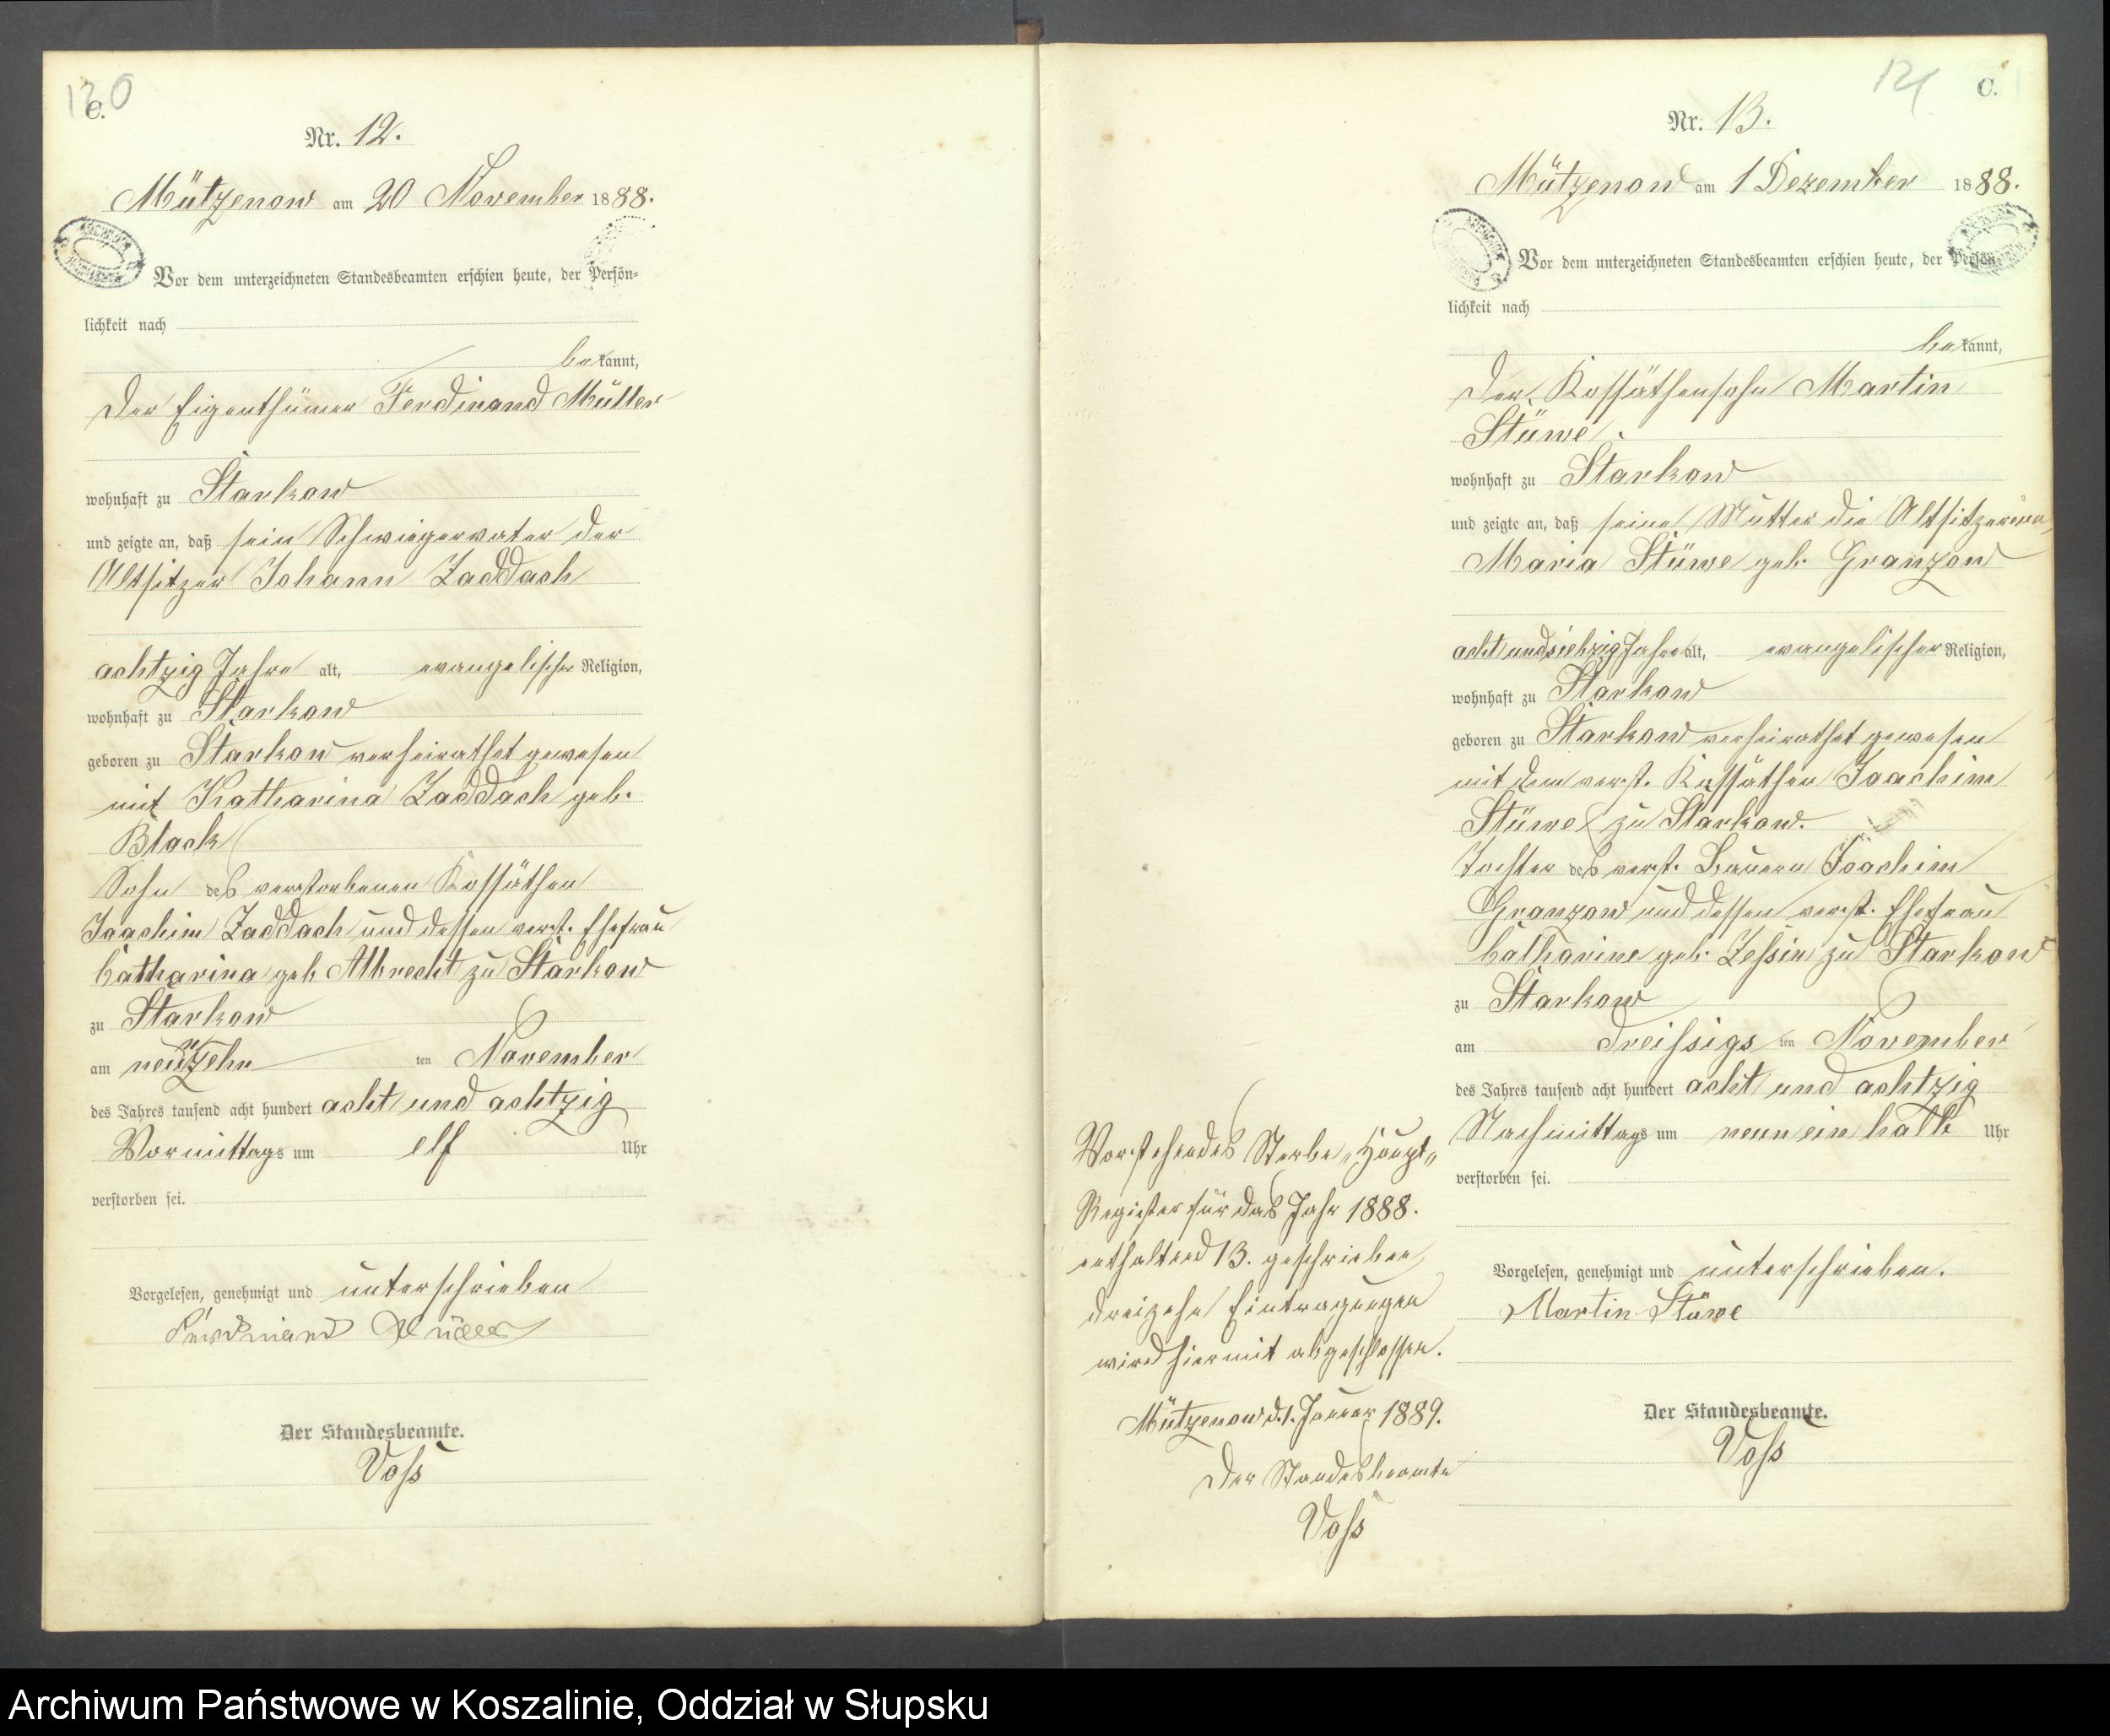 120
C.
Nr. 12.
Mützenow am 20 November 1888.
Vor dem unterzeichneten Standesbeamten erschien heute, der Persön-
lichkeit nach
bekannt,
der Eigenthümer Ferdinand Müller
wohnhaft zu Starkow
und zeigte an, daß sein Schwiegervater der
Altsitzer Johann Zaddach
achtzig Jahre alt, evangelischer Religion,
wohnhaft zu Starkow
geboren zu Starkow verheirathet gewesen
mit Katharina Zaddach geb.
Black
Sohn des verstorbenen Kossäthen
Joachim Zaddach und dessen verst. Ehefrau
Catharina geb. Albrecht zu Starkow
zu Starkow
am neunzehn ten November
des Jahres tausend acht hundert acht und achtzig
Vormittags um elf Uhr
verstorben sei.
Vorgelesen, genehmigt und unterschrieben
Ferdinand Müller
Der Standesbeamte.
Voß
121
C.
Nr. 13.
Mützenow am 1 Dezember 1888.
Vor dem unterzeichneten Standesbeamten erschien heute, der Persön-
lichkeit nach
bekannt,
der Kossäthensohn Martin
Stüwe
wohnhaft zu Starkow
und zeigte an, daß seine Mutter die Altsitzerin
Maria Stüwe geb. Granzow
acht und siebzig Jahre alt, evangelischer Religion,
wohnhaft zu Starkow
geboren zu Starkow verheirathet gewesen
mit dem verst. Kossäthen Joachim
Stüwe zu Starkow.
Tochter des verst. Bauern Joachim
Granzow und dessen verst. Ehefrau
Catharine geb. Zessin zu Starkow
zu Starkow
am dreißigs ten November
des Jahres tausend acht hundert acht und achtzig
Nachmittags um neun ein halb Uhr
verstorben sei.
Vorgelesen, genehmigt und unterschrieben.
Martin Stüwe
Der Standesbeamte.
Voß
Vorstehendes Sterbe "Haupt"
Register für das Jahr 1888.
enthaltend 13. geschrieben
dreizehn Eintragungen
wird hiermit abgeschlossen.
Mützenow d. 1. Januar 1889.
Der Standesbeamte
Voß
Archiwum Państwowe w Koszalinie, Oddział w Słupsku